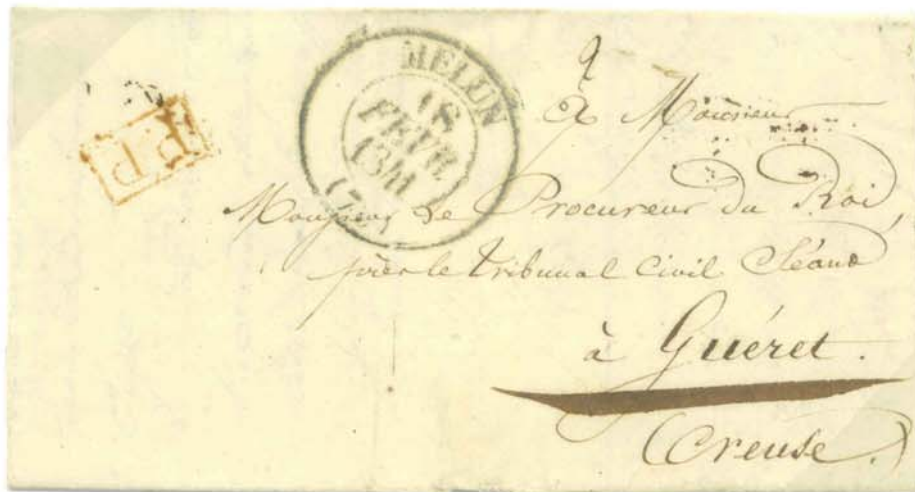 P.P.
MELUN
18
FEVR.
(77)
A Monsieur
Monsieur le Procureur du Roi,
près le tribunal Civil Séant
à Guéret.
(Creuse.)